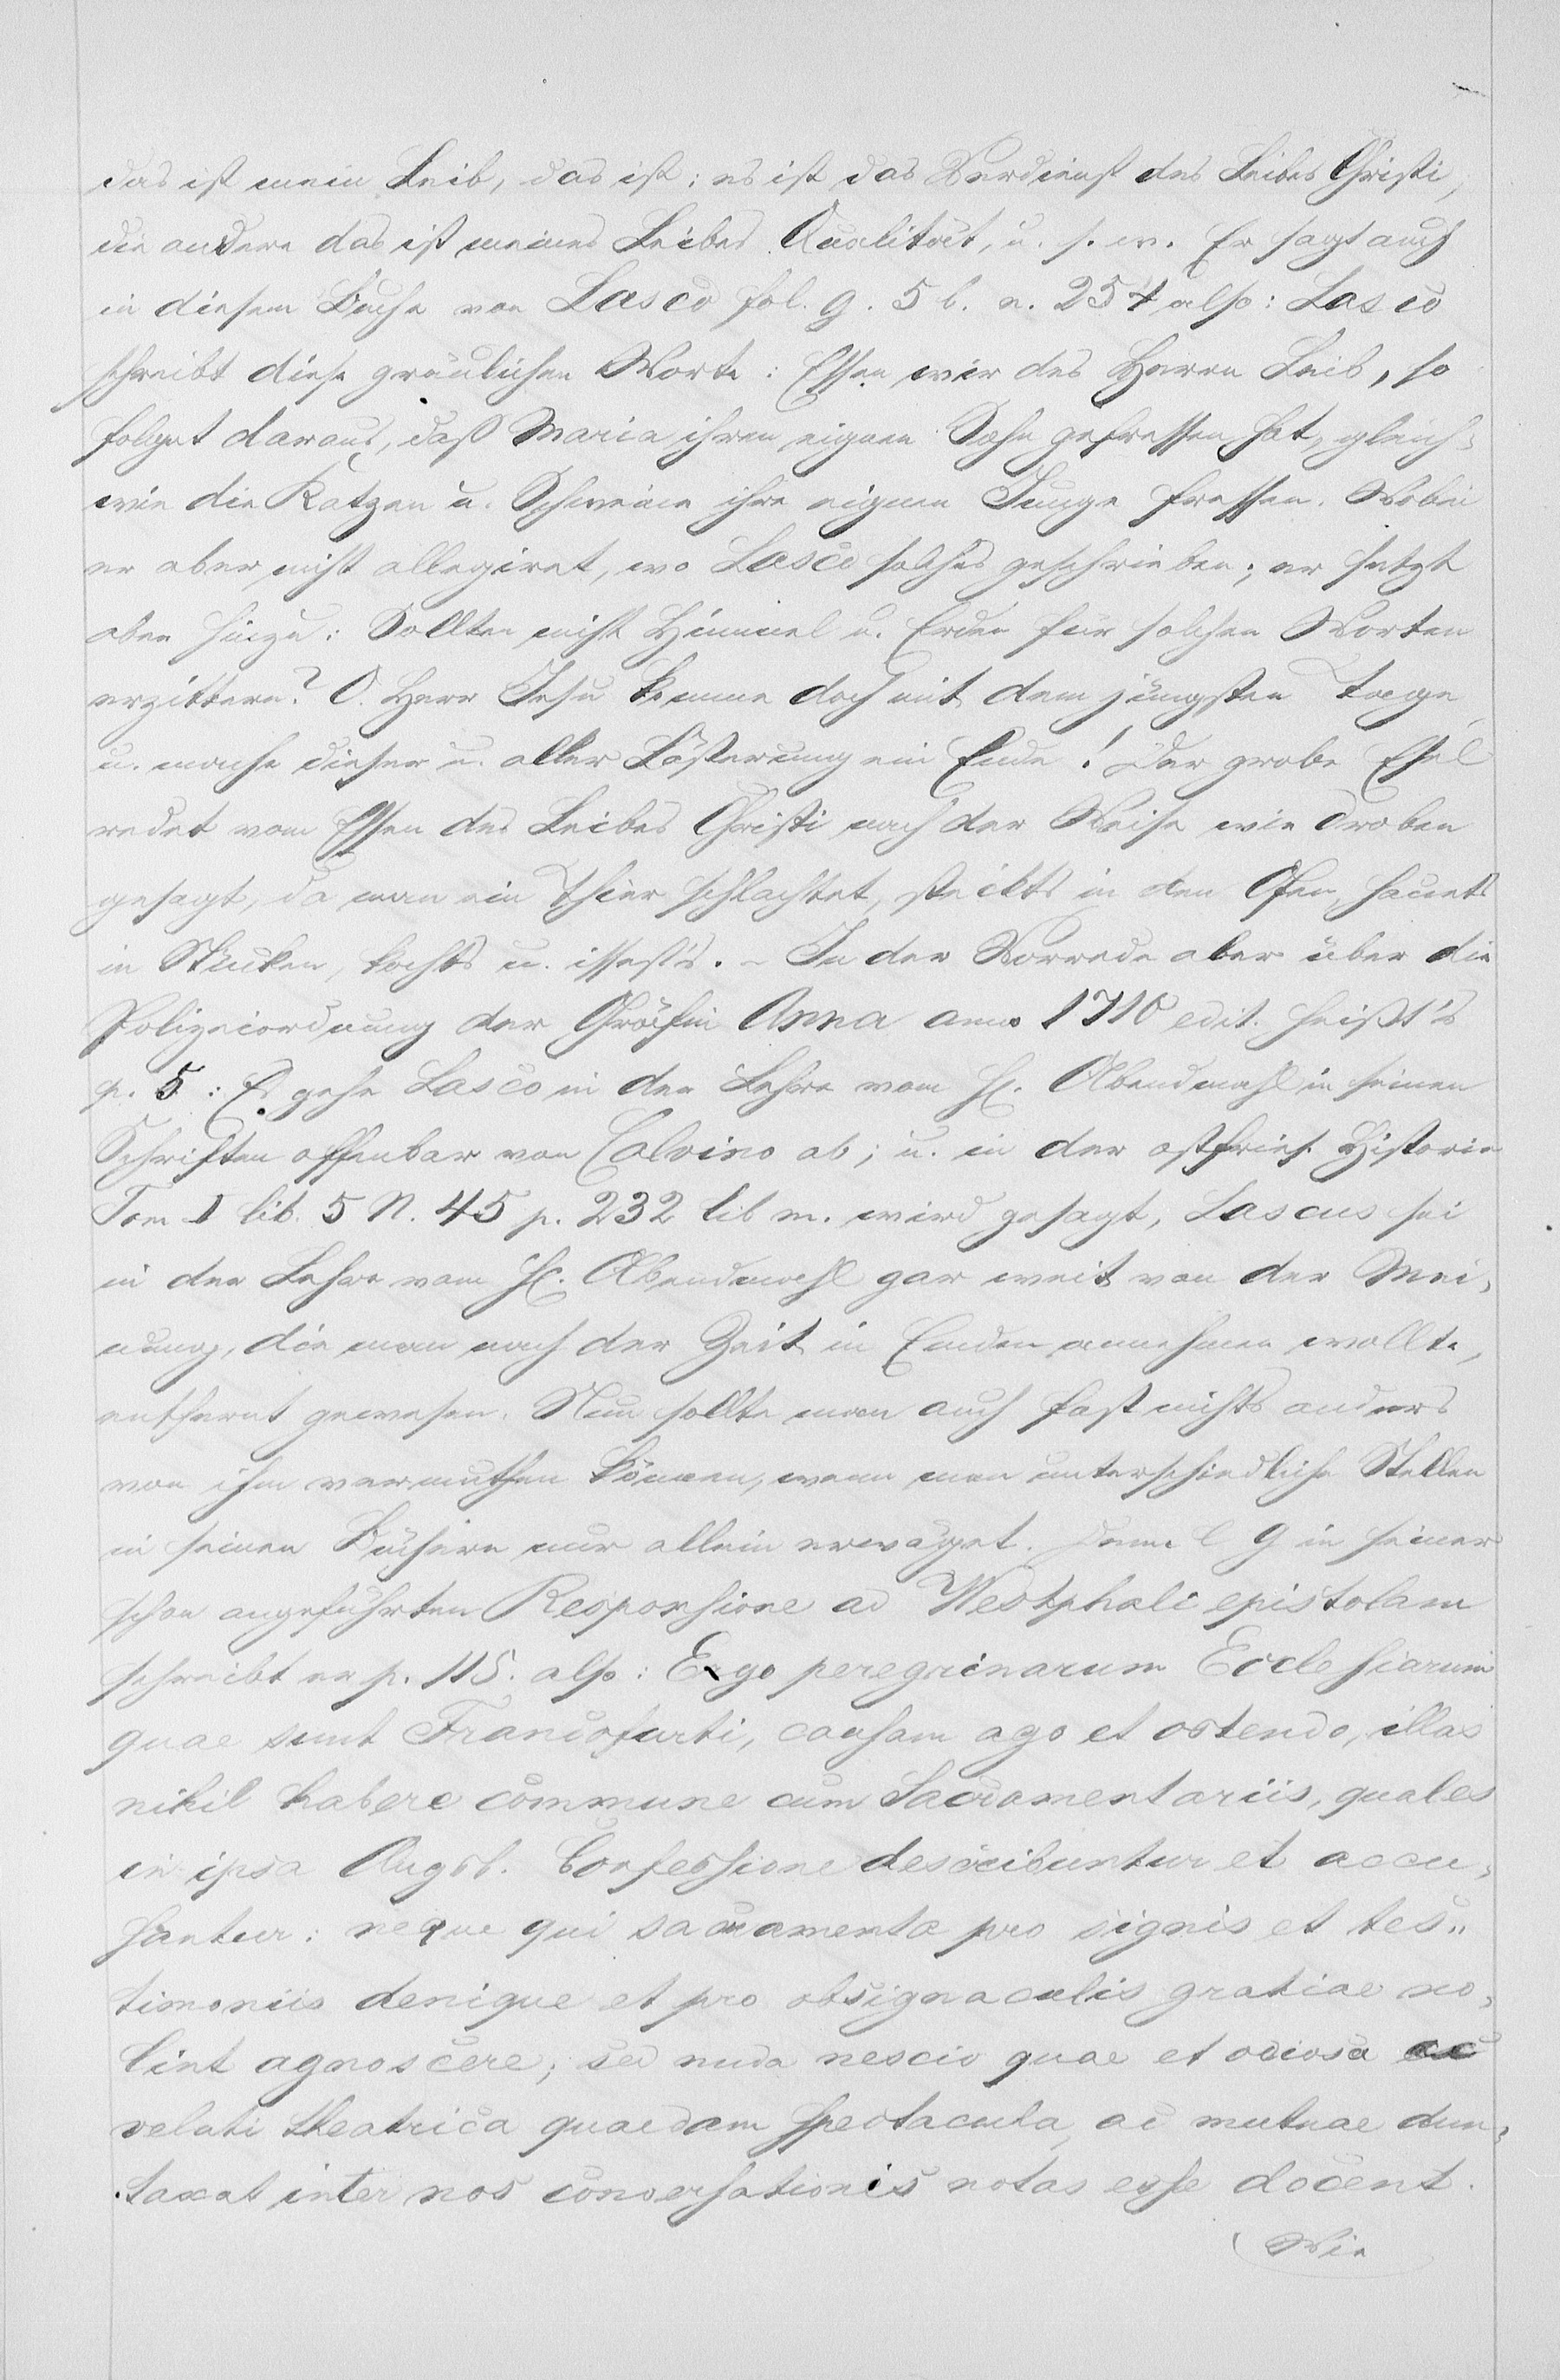 das ist mein Leib, das ist: es ist das Verdienst des Leibes Christi,
die andere das ist meines Leibes Qualität, u. s. w. Er sagt auch
in diesem Buche von Lasco fol. g. 5 b. n. 254 also: Lasco
schreibt diese gräulichen Worte: Essen wir des Herrn Leib, so
folget daraus, daß Maria ihren eignen Sohn gefressen hat, gleich-
wie die Katzen u. Schweine ihre eignen Junge fressen. Wobei
er aber nicht allegiret, wo Lasco solches geschrieben; er setzt
aber hinzu: Sollten nicht Himmel u. Erden für solchen Worten
erzittern? O. Herr Jesu komme doch mit dem jüngsten Tage
u. mache dieser u. aller Lästerung ein Ende! Der grobe Esel
redet vom Essen des Leibes Christi nach der Weise wie droben
gesagt, da man ein Thier schlachtet, steckts in den Ofen, hauets
in Stücken, kochts u. isset's. - In der Vorrede aber über die
Polizeiordnung der Gräfin Anna anno 1716 edit. heißt's
p. 5: Es gehe Lasco in der Lehre vom H. Abendmahl in seinen
Schriften offenbar von Calvino ab; u. in der ostfries. Historie
Tom I lib. 5 N. 45 p. 232 lib m. wird gesagt, Lascus sei
in der Lehre vom H. Abendmahl gar weit von der Mei-
nung, die man nach der Zeit in Emden annehmen wollte,
entfernt gewesen. Nun sollte man auch fast nichts anders
von ihm vermuthen können, wenn man unterschiedliche Stellen
in seinen Büchern nur allein erwäget. Denn l g in seiner
schon angeführten Responsione ad Westphali epistolam
schreibt er p. 115. also: Ergo peregrinarum Ecclesiarum
quae sunt Francofurti, causam ago et ostendo, illas
nihil habere commune cum Sacramentariis, quales
in ipsa Augsb. Confessione describuntur et accu-
santur: neque qui sacramenta pro signis et tes-
timoniis denique et pro obsignaculis gratiae no-
lint agnoscere; sed nuda nescio quae et ociosa ac
velati theatrica quaedam spectacula, ac mutuae dun-
taxat inter nos conversationis notas esse docent.
Wie